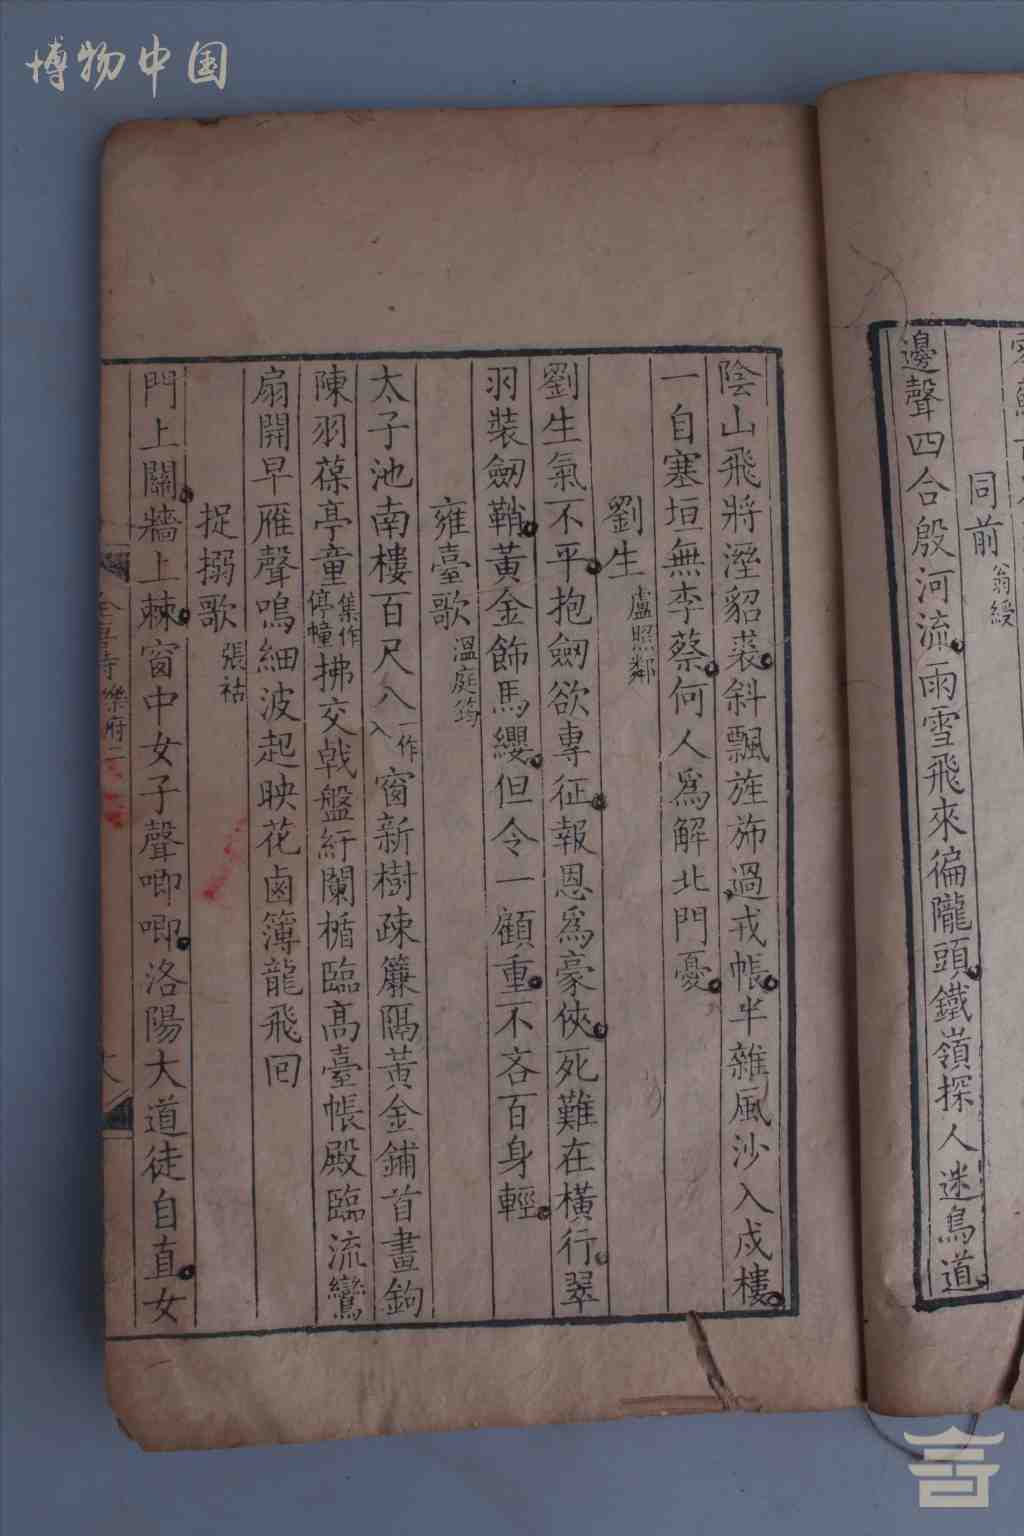 博物中国
同前 翁綬
邊聲四合殷河流雨雪飛來徧隴頭鐵嶺探人迷鳥道
陰山飛將溼貂裘斜飄旌斾過戎帳半雜風沙入戍樓
一自塞垣無李蔡何人爲解北門憂
劉生 盧照鄰
劉生氣不平抱劒欲專征報恩爲豪俠死難在橫行翠
羽裝劒鞘黃金飾馬纓但令一顧重不吝百身輕
雍臺歌 溫庭筠
太子池南樓百尺八一作入窗新樹疎簾隔黃金鋪首畫鉤
陳羽葆亭童集作停幢拂交戟盤紆闌楯臨高臺帳殿臨流鸞
扇開早雁聲鳴細波起映花鹵簿龍飛回
捉搦歌 張祜
門上關牆上棘窗中女子聲唧唧洛陽大道徒自直女
全唐詩樂府二